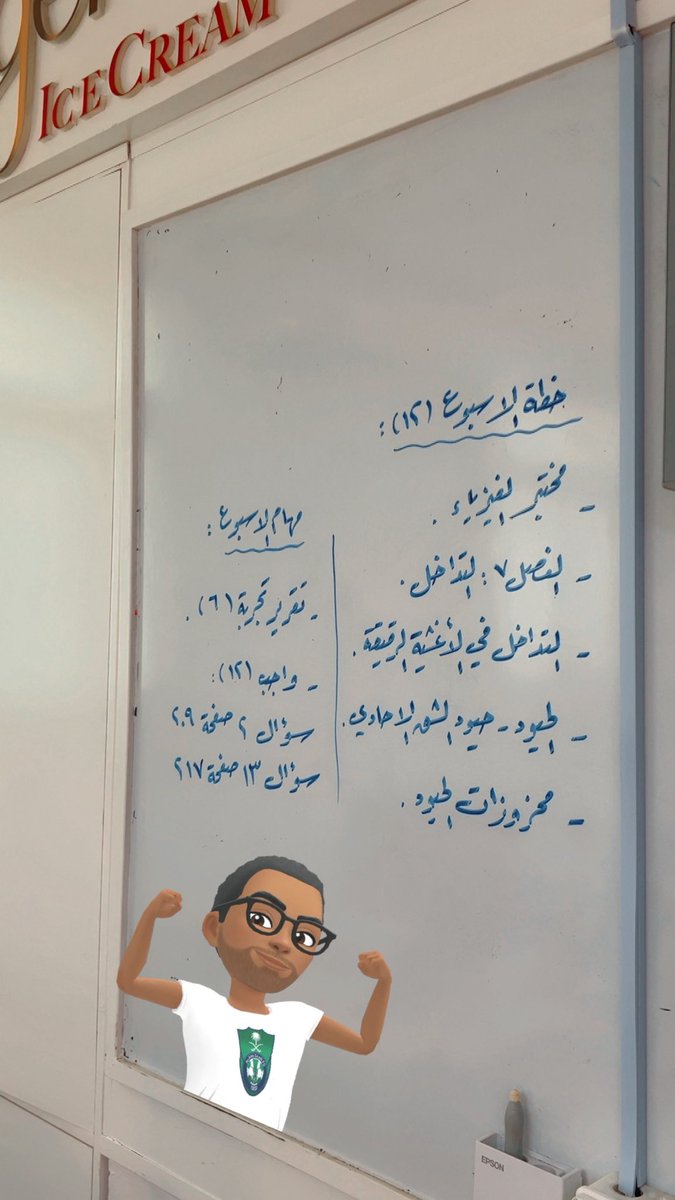 ICE CREAM
خطة الاسبوع (١٢):
- مختبر الفيزياء.
- الفصل ٧: التداخل.
- التداخل في الأغشية الرقيقة.
- الحيود - حيود الشق الاحادي.
- محزوزات الحيود.
مهام الاسبوع:
- تقرير تجربة (٦).
- واجب (١٢):
سؤال ٢ صفحة ٢٠٩
سؤال ١٣ صفحة ٢١٧
EPSON